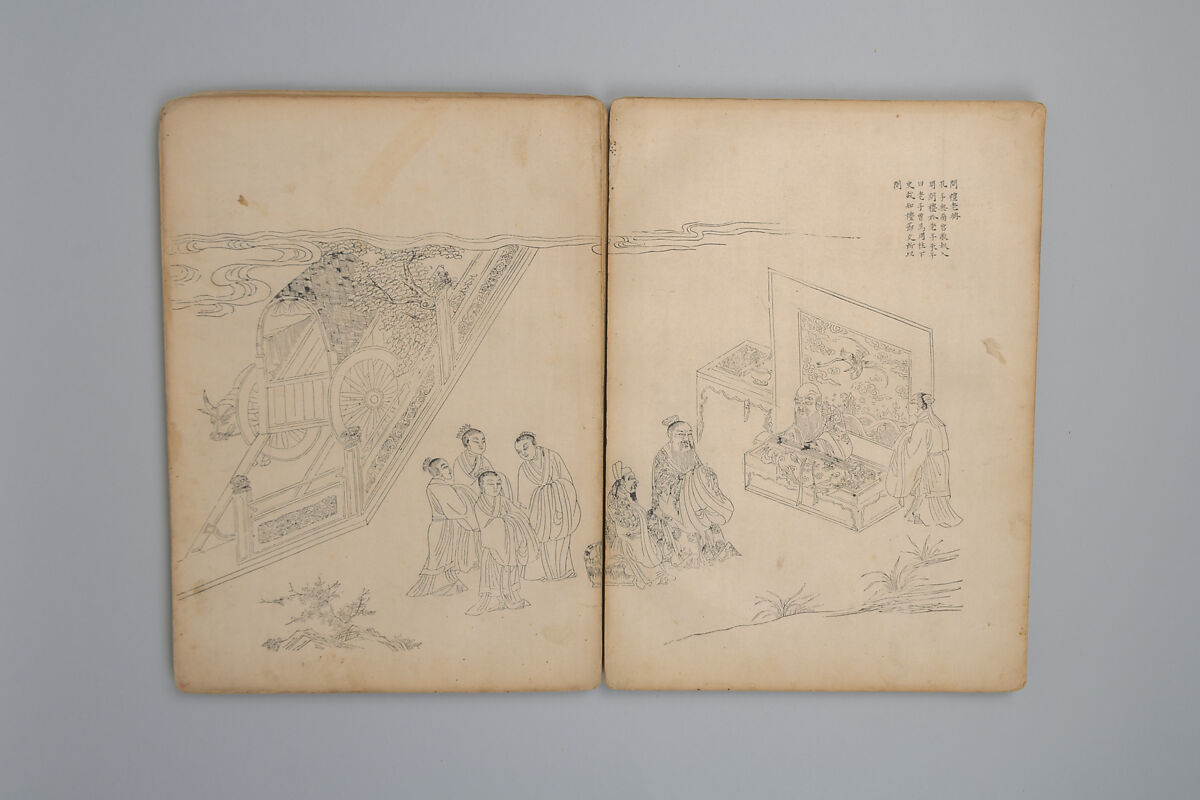 問禮老聃
孔子與南宮敬叔入
周問禮於老子朱子
曰老子曾為周柱下
史故知禮節文所以
問